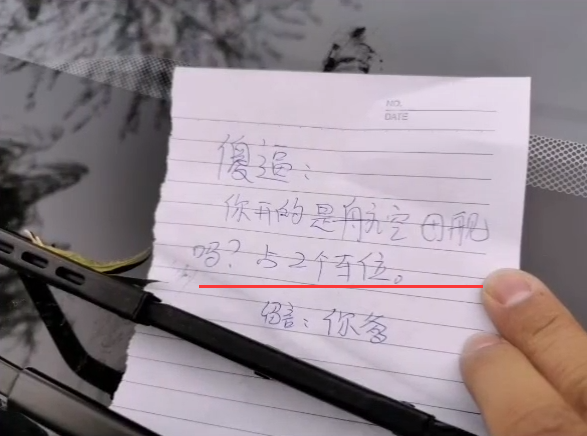 NO.
DATE
傻逼：
你开的是航空母舰
吗？占2个车位。
留言：你爹